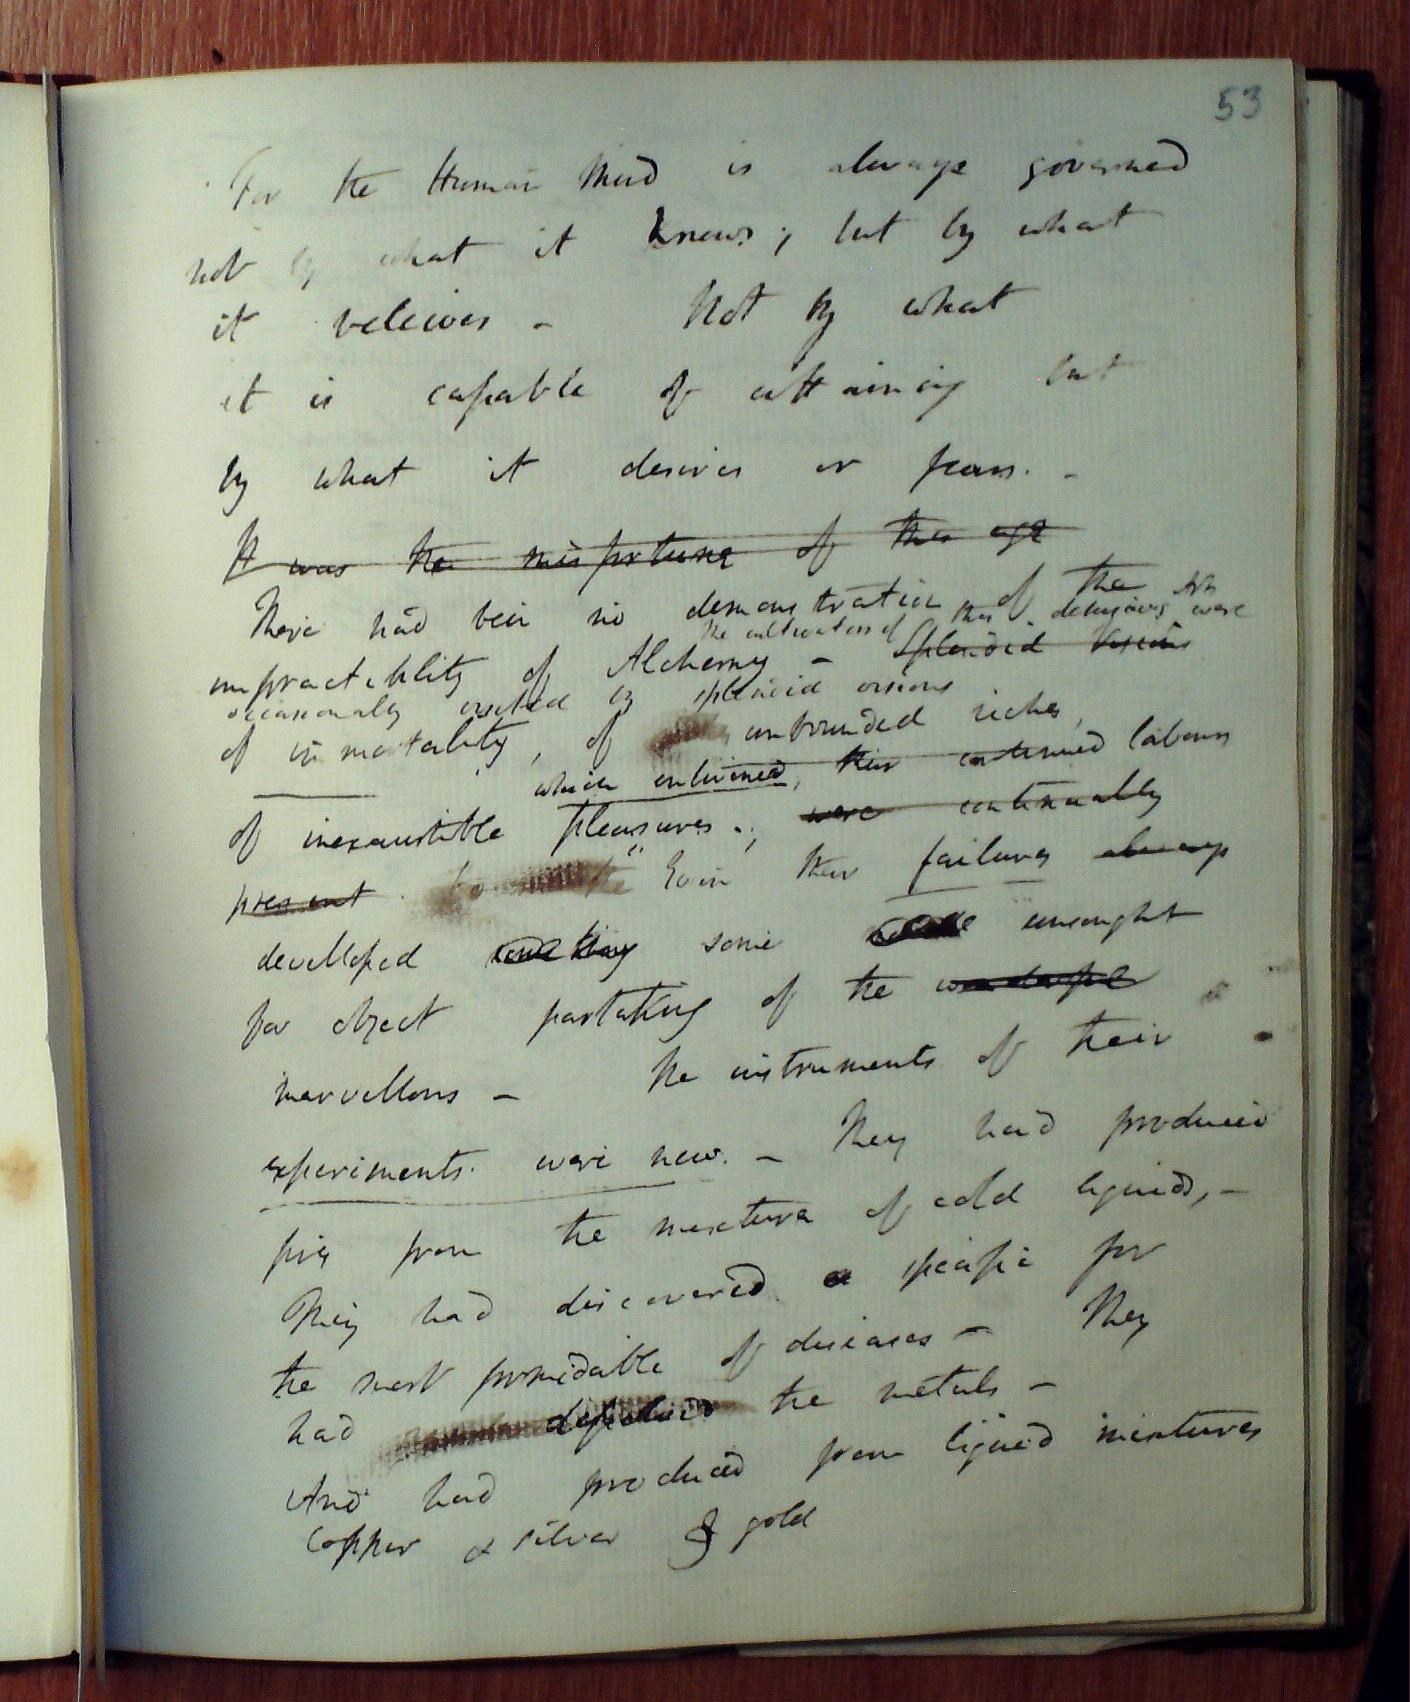 53
For the Human Mind is always governed
not by what it knows; but by what
it beleives - Not by what
it is capable of attaining but
by what it desires or fears. -
It was the misfortune of this age
There had been no demonstration of the
the cultivators of this delusive Art were
impracticability of Alchemy - Splendid Visions
occasionally excited by splendid visions
of immortality, of unbounded riches,
which enlivened, their continued labours
of inexaustible pleasures.; were continually
present Even their failures always
developed something some unsought
for object partaking of the wonderful
marvellous - The instruments of their
experiments. were new. - They had produced
fire from the mixture of cold liquids, -
They had discovered a specific for
the most formidable of diseases - They
had the metals -
And had produced from liquid mixtures
Copper & silver & gold